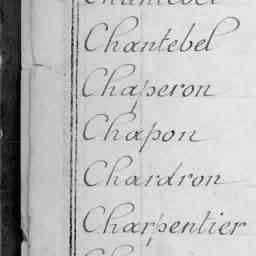 Chantebel
Chaperon
Chapon
Chardron
Charpentier